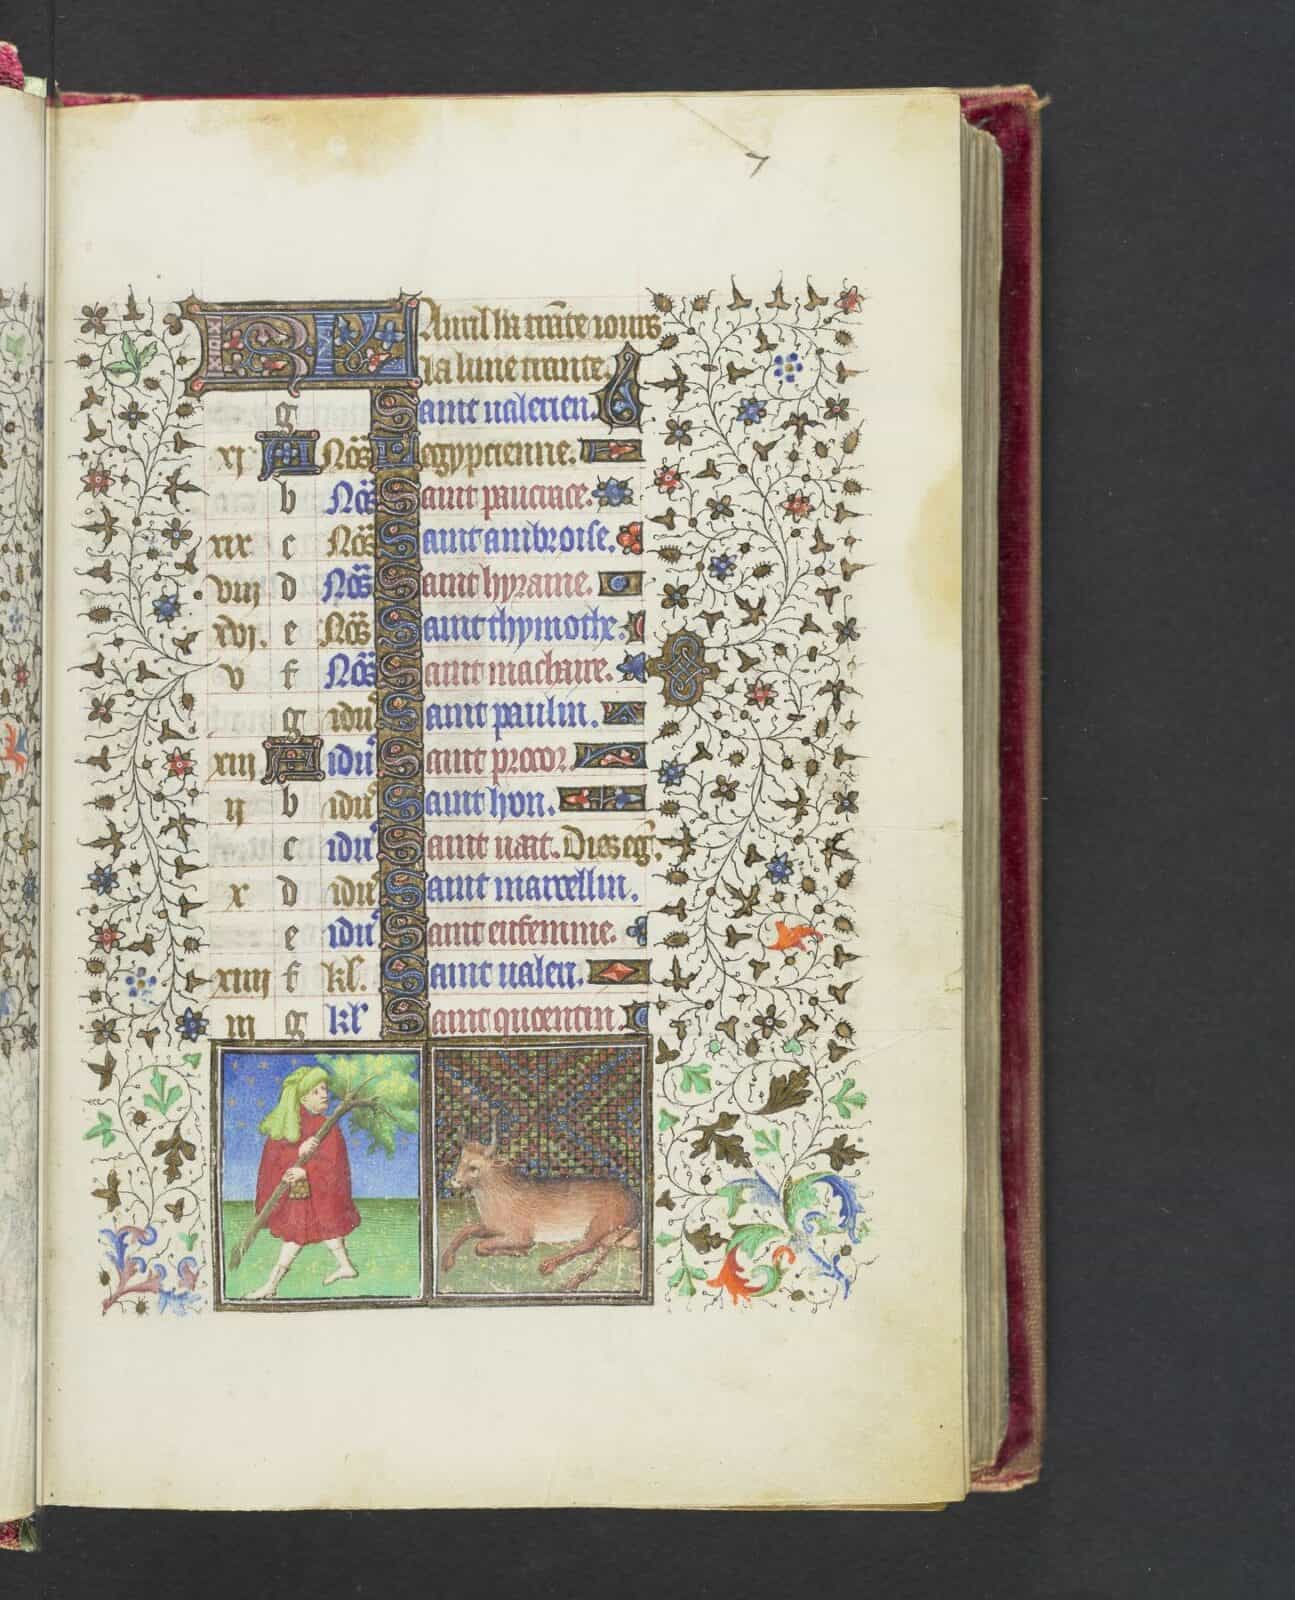 KL Auril ha trãte iours
la lune trante.
g Saint ualerien.
xj A Nõs Legypcienne.
b Nõs Saint panciace.
xix c Nõs Saint ambroise.
viij d Nõs Saint hyraine.
xvj. e Nõs Saint thymothe.
v f Nõs Saint machaire.
g idus Saint paulin.
xiij A idus Saint procor
ij b idus Saint hon.
c idus Saint uaat. Dies eg.
x d idus Saint marcellin.
e idus Saint eufemme.
xiiij f kl. Saint ualeri.
iij g kl Saint quentin.